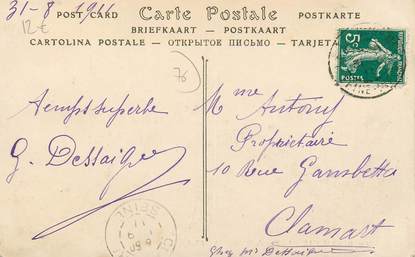 31-8 1911
12€
POST CARD Carte Postale POSTKARTE
BRIEFKAART - POSTKAART
CARTOLINA POSTALE - ОТКРЫТОЕ ПИСЬМО - TARJETA
5c
POSTES
76
Temps superbe
G. Dessaigne
Mme
Propriétaire
10 Rue Gambetta
Clamart
Chez Mr
SEINE